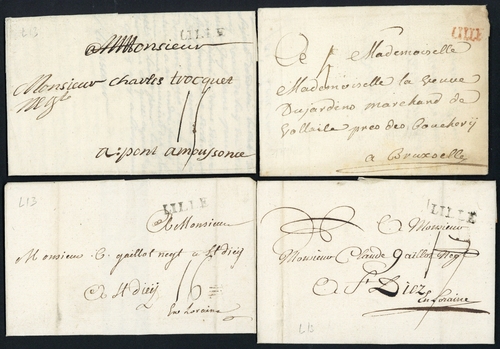 LILLE
A Monsieur
Monsieur charles trocquet
Negt
a pont amoussonce
L13
LILLE
A Mademoiselle
Mademoiselle la veuve
Dujardens marchand de
vollaile pres des Boucherÿ
a Bruxselle
L13
LILLE
A Monsieur
Monsieur C. gaillot negt a St dieÿ
A St dieÿ
en Loraine
LILLE
A Monsieur
Monsieur Claude Gaillot Neg
A St Diez
En Loraine
L13